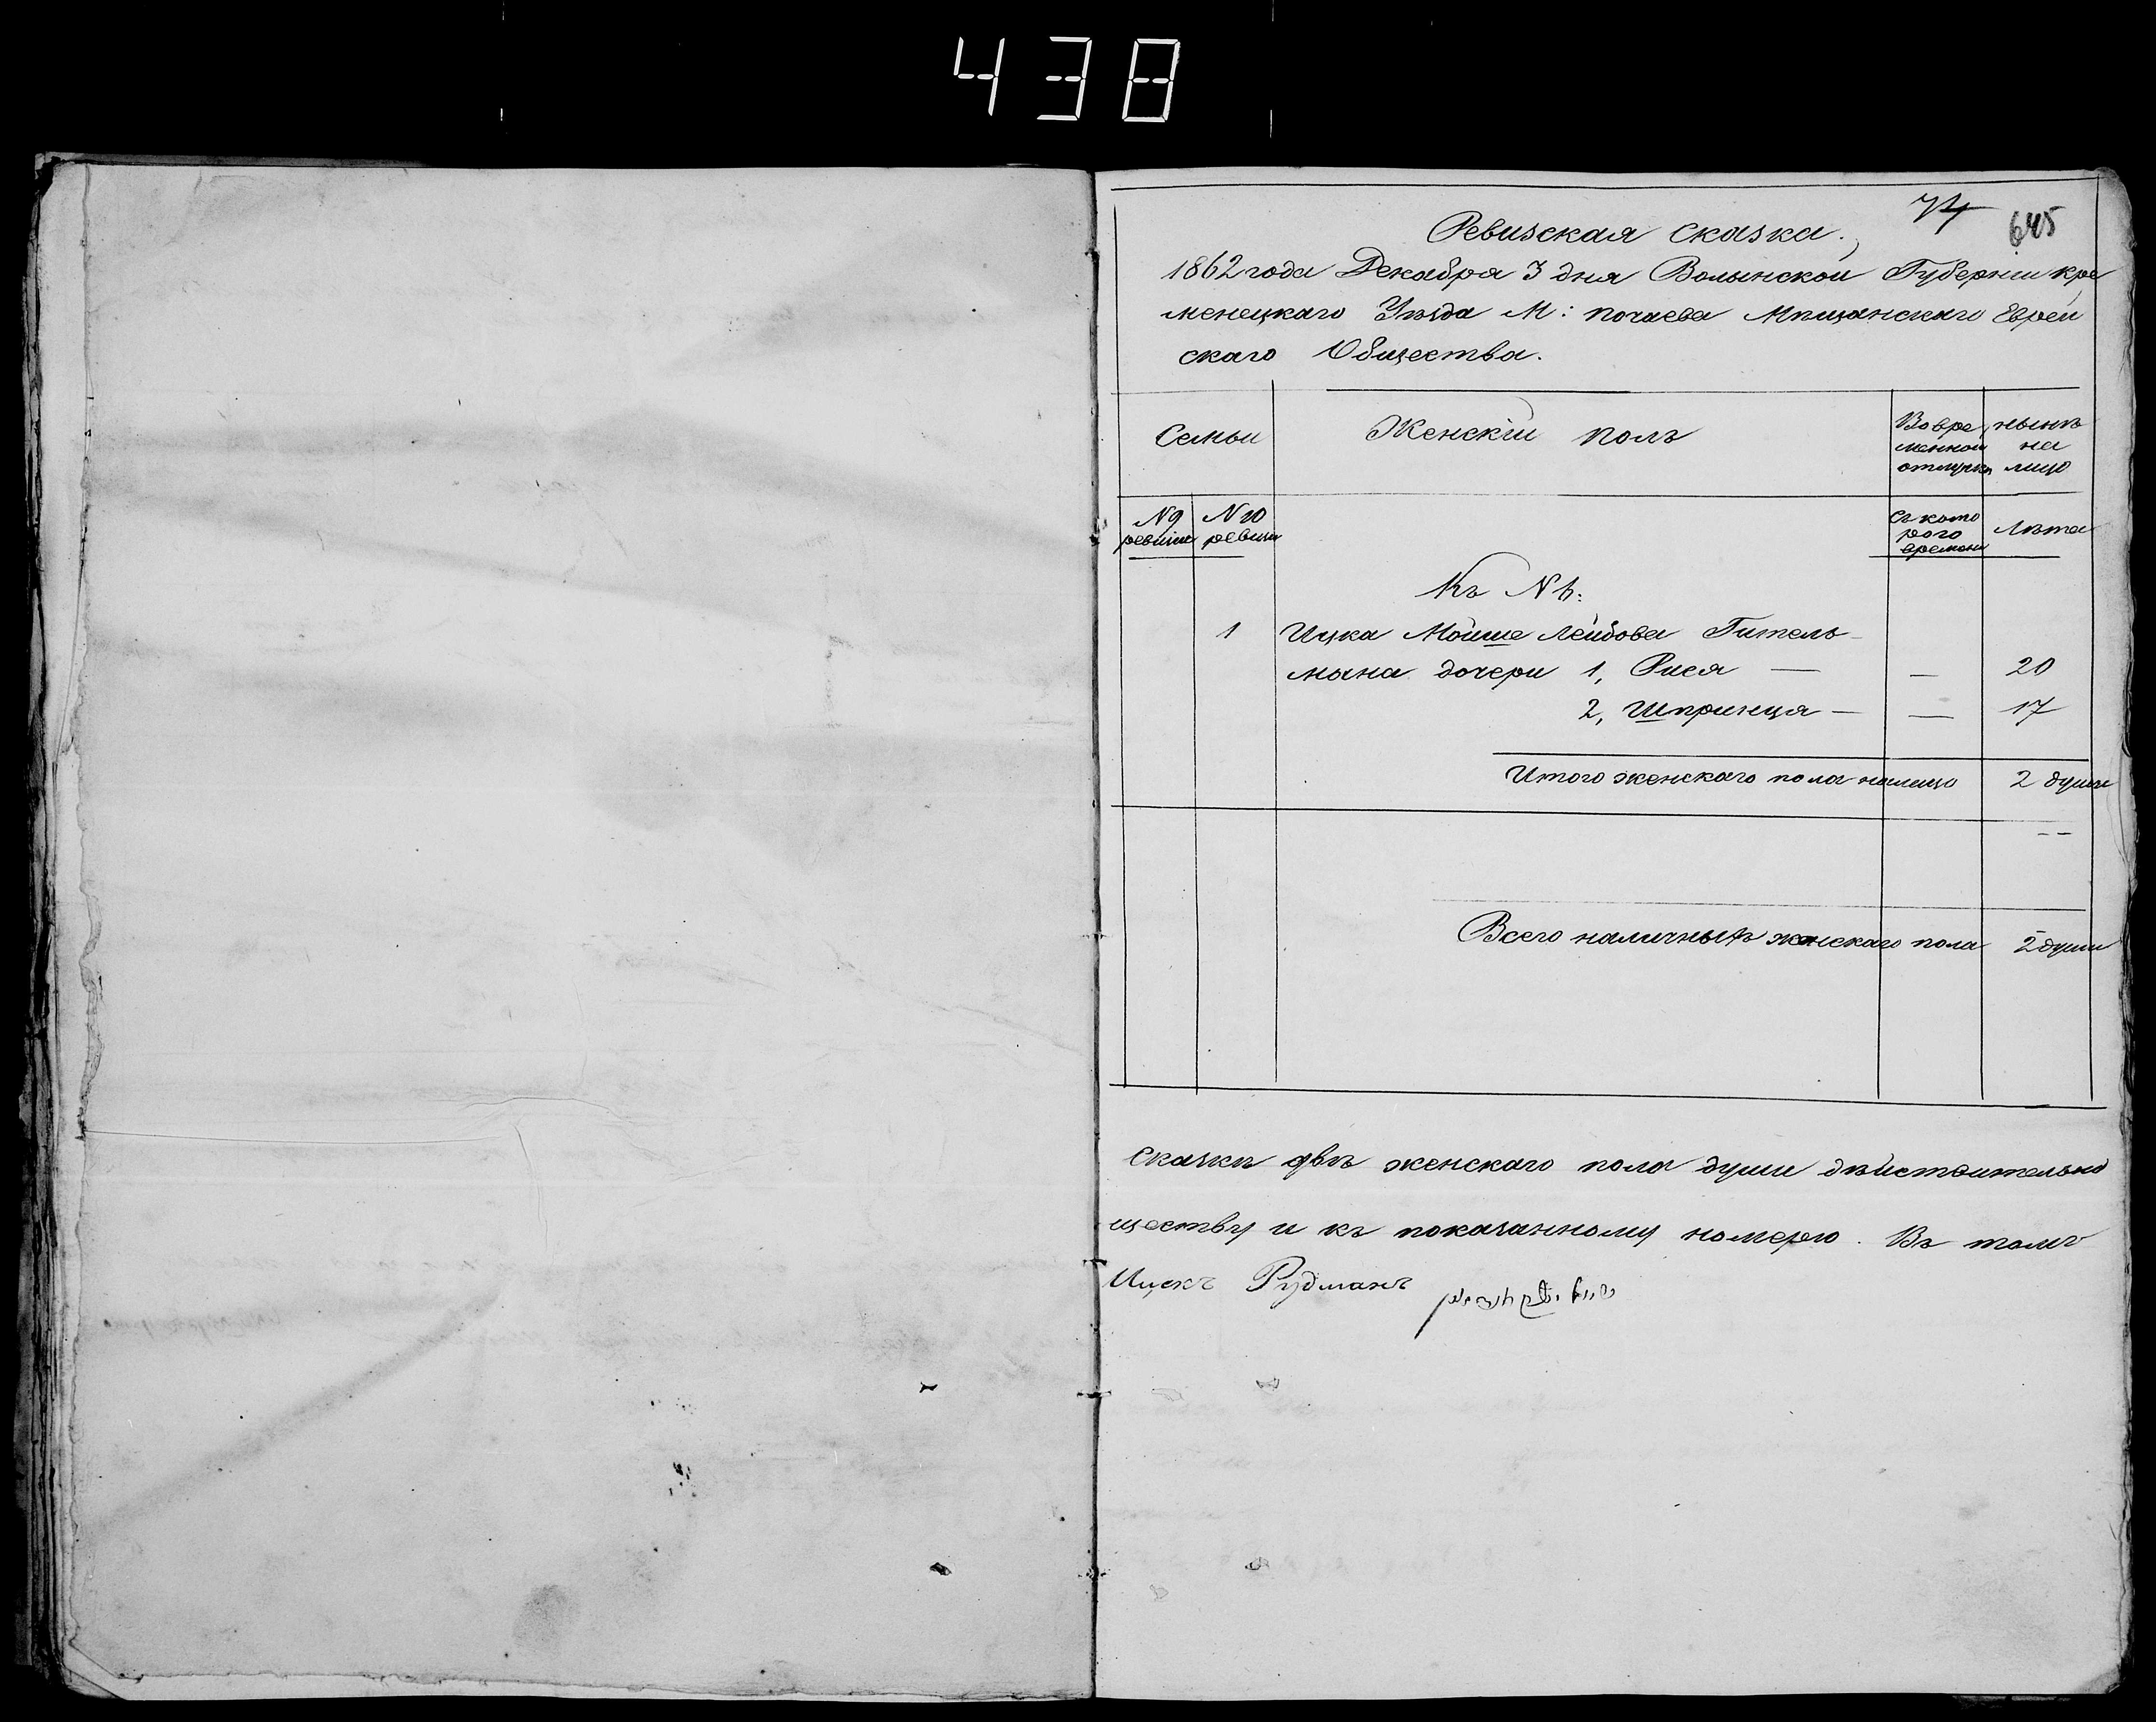 438
74
645
Ревизская сказка.
1862 года Декабря 3 дня Волынской Губерніи кре
менецкаго Уѣзда М: почаева Мѣщанскаго Еврей
скаго Общества.
Семьи
Женскій полъ
Во вре
менной
отлучкѣ
нынѣ
на
лицо
N 9
ревизіи
N 10
ревизіи
съ кото
рого
времени
Лѣта
Къ N 1:
1 Ицка Мойше Лейбова Гитель-
мана дочери 1, Рися — — 20
2, Шпринца — — 17
Итого женскаго пола налицо 2 души
Всего наличныхъ женскаго пола 2 души
Сказкѣ двѣ женскаго пола души дѣйствительно
ществу и къ показанному номерю. Въ томъ
Ицекъ Рудманъ